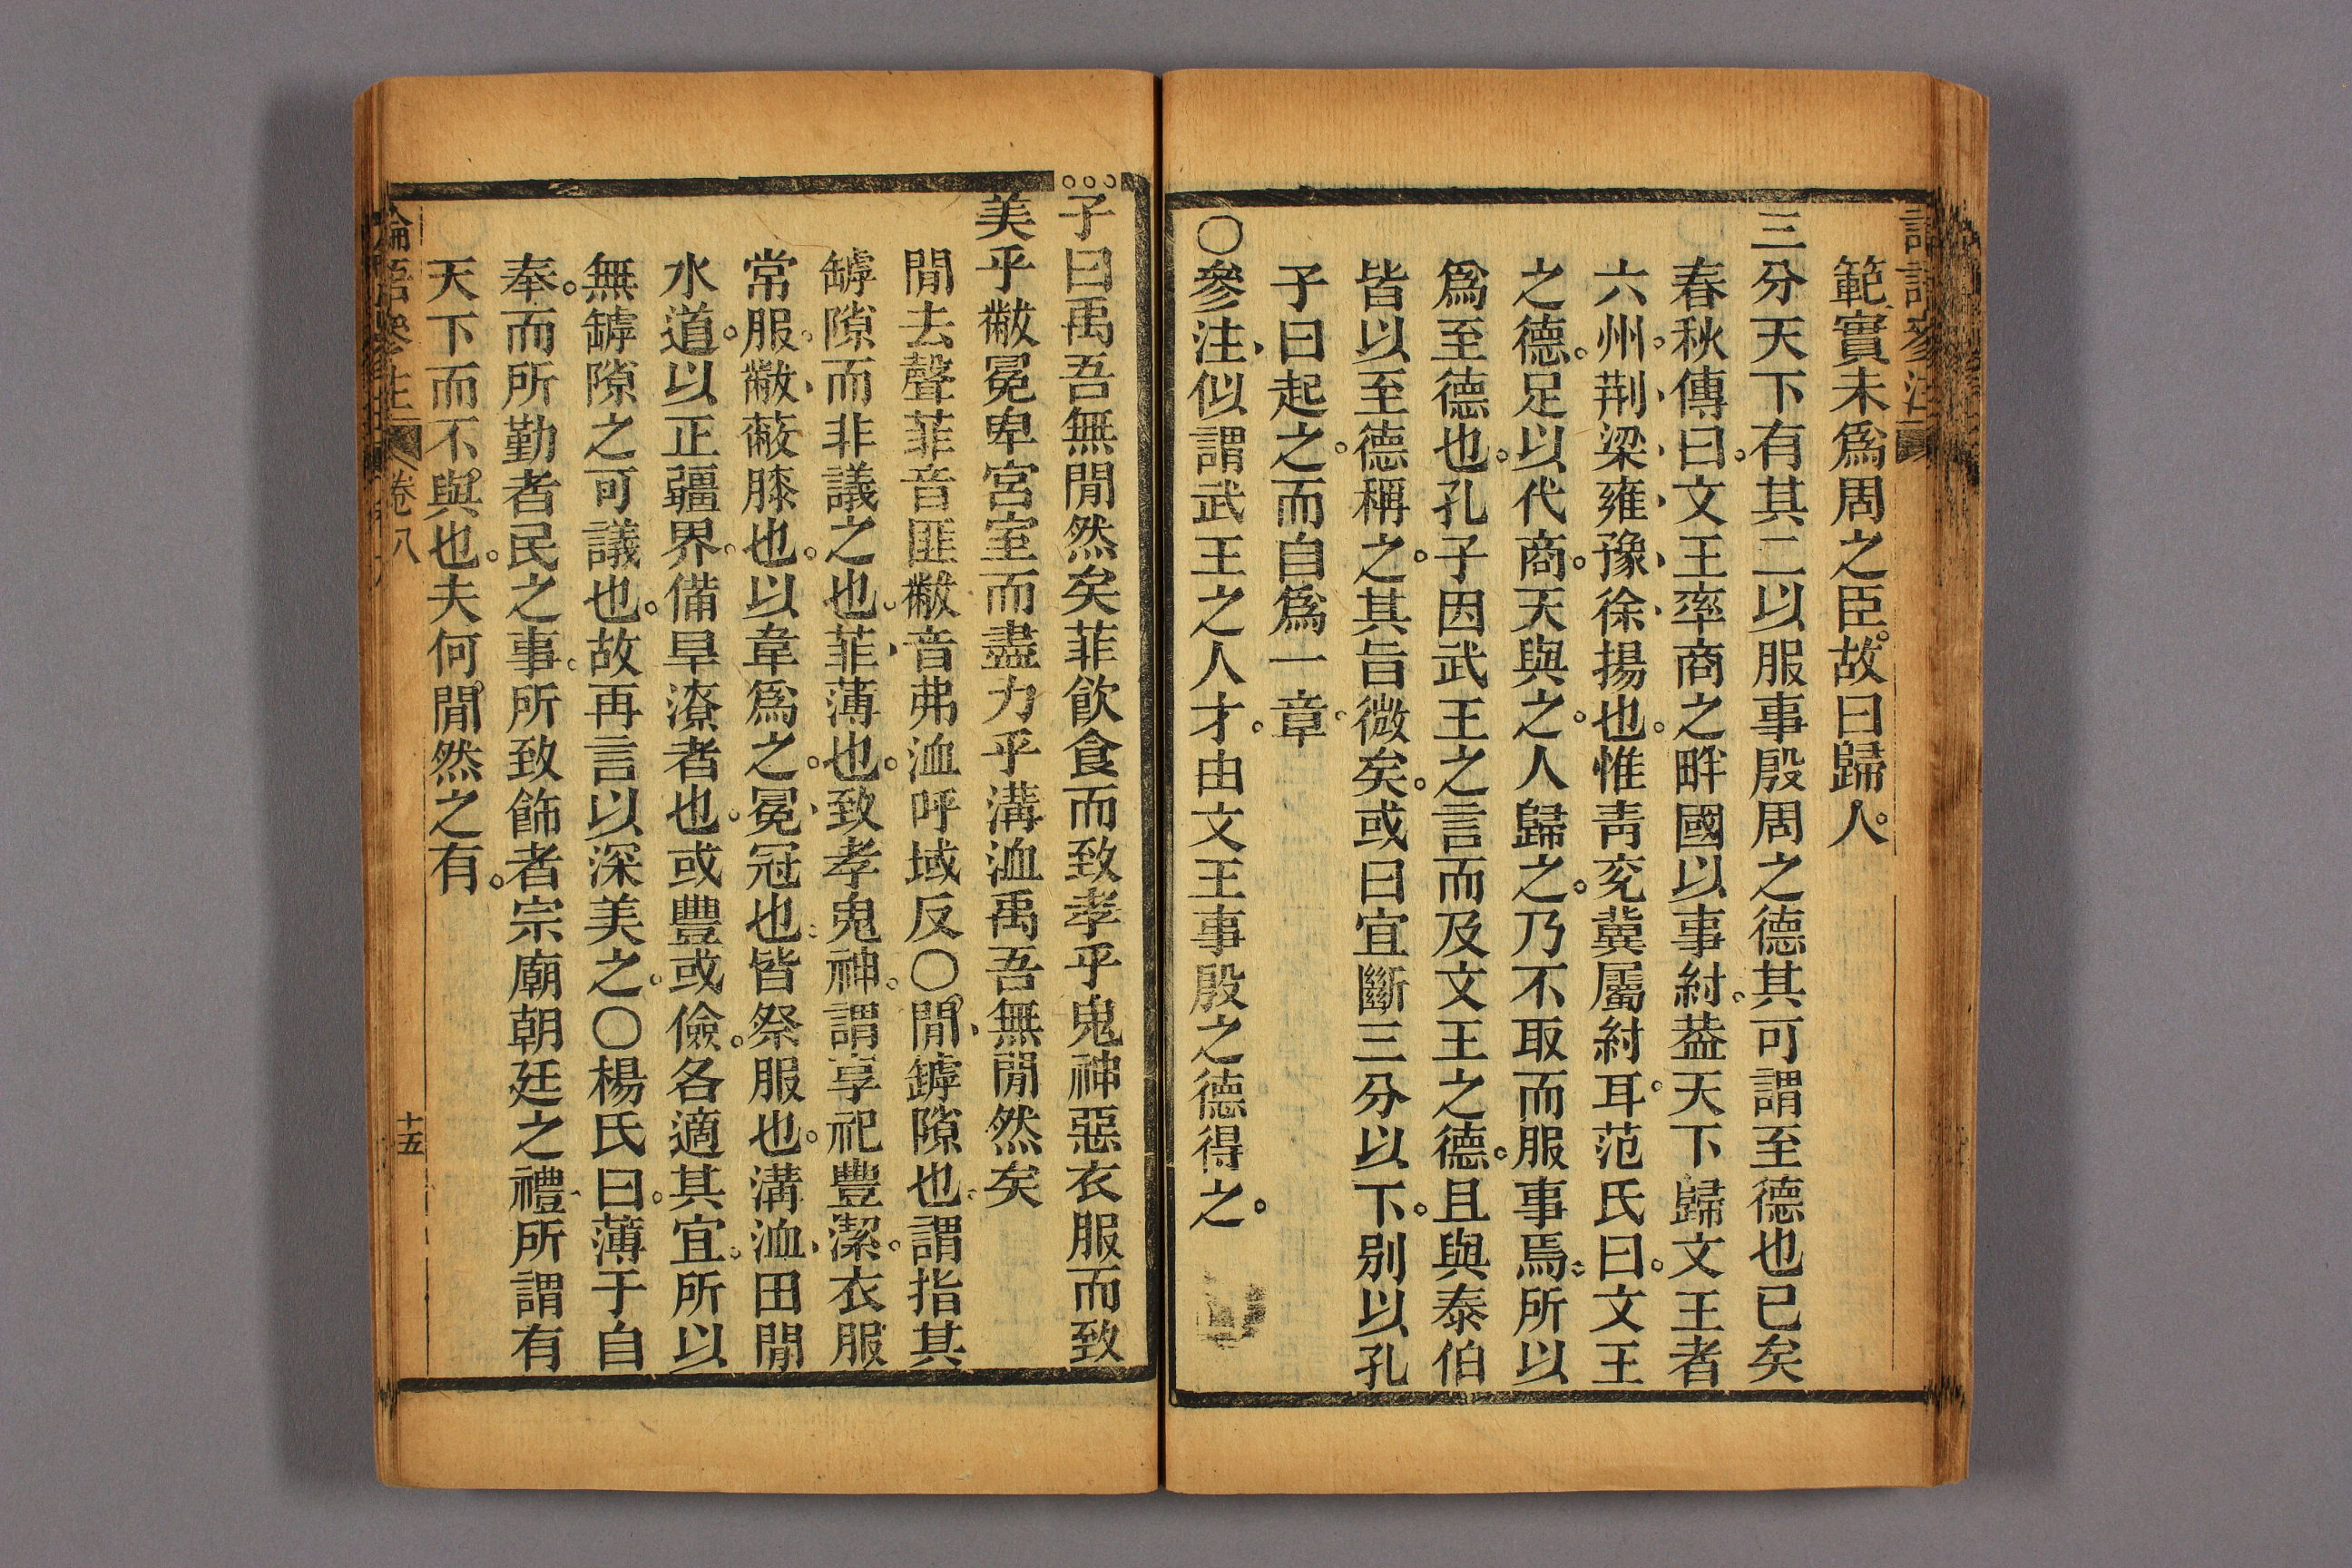 範實未爲周之臣。故曰歸人。
三分天下有其二以服事殷周之德其可謂至德也已矣
春秋傳曰。文王率商之畔國以事紂。葢天下歸文王者
六州。荆、梁、雍、豫、徐、揚也。惟青兖冀屬紂耳。范氏曰。文王
之德。足以代商。天與之。人歸之。乃不取而服事焉。所以
爲至德也。孔子因武王之言而及文王之德。且與泰伯
皆以至德稱之。其旨微矣。或曰宜斷三分以下。別以孔
子曰起之。而自爲一章。
○參注、似謂武王之人才。由文王事殷之德得之。
子曰禹吾無閒然矣菲飲食而致孝乎鬼神惡衣服而致
美乎黻冕卑宮室而盡力乎溝洫禹吾無閒然矣
閒去聲菲音匪黻音弗洫呼域反○閒、罅隙也。謂指其
罅隙而非議之也。菲、薄也。致孝鬼神。謂享祀豐潔。衣服
常服。黻、蔽膝也。以韋爲之。冕、冠也。皆祭服也。溝洫、田閒
水道。以正疆界。備旱潦者也。或豐或儉。各適其宜。所以
無罅隙之可議也。故再言以深美之。○楊氏曰。薄于自
奉。而所勤者民之事。所致飾者宗廟朝廷之禮、所謂有
天下而不與也。夫何閒然之有。
論語參注 卷八
十五